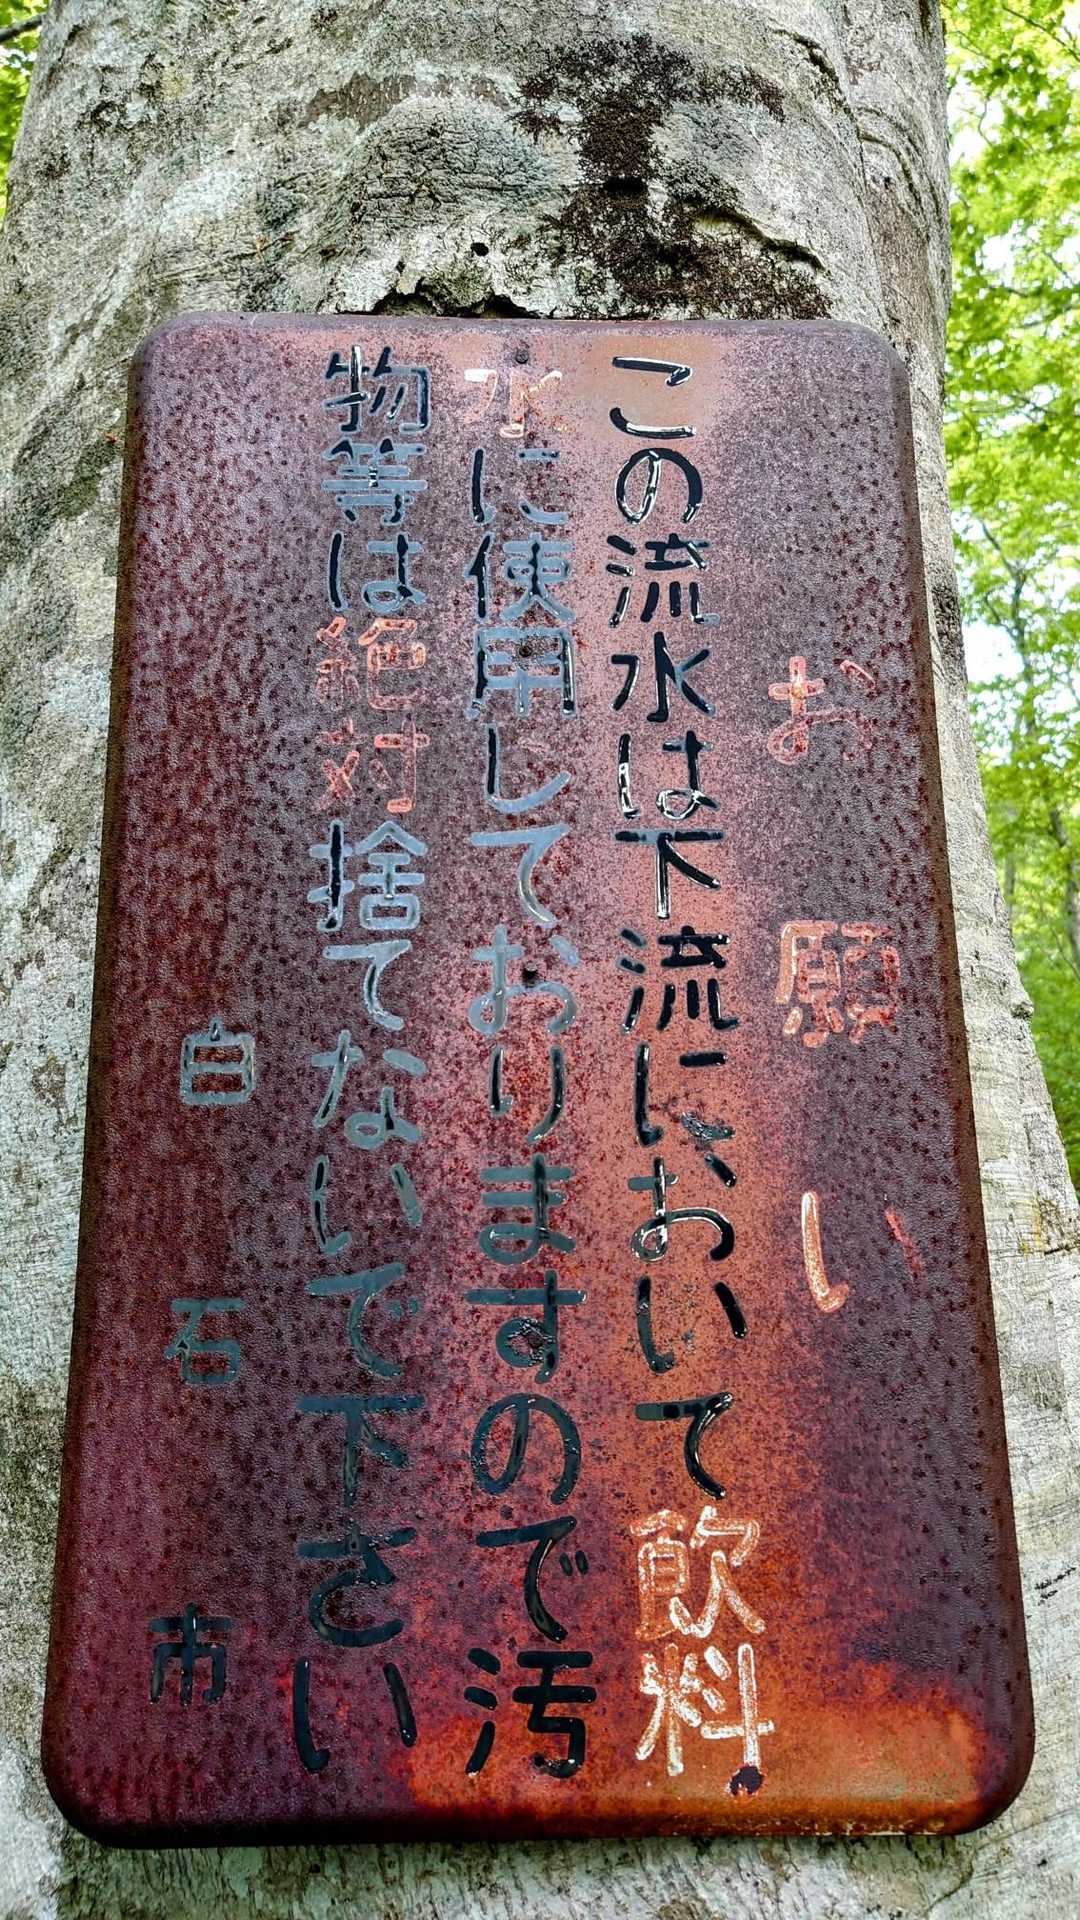 お願い
この流水は下流において飲料
水に使用しておりますので汚
物等は絶対捨てないで下さい
白石市